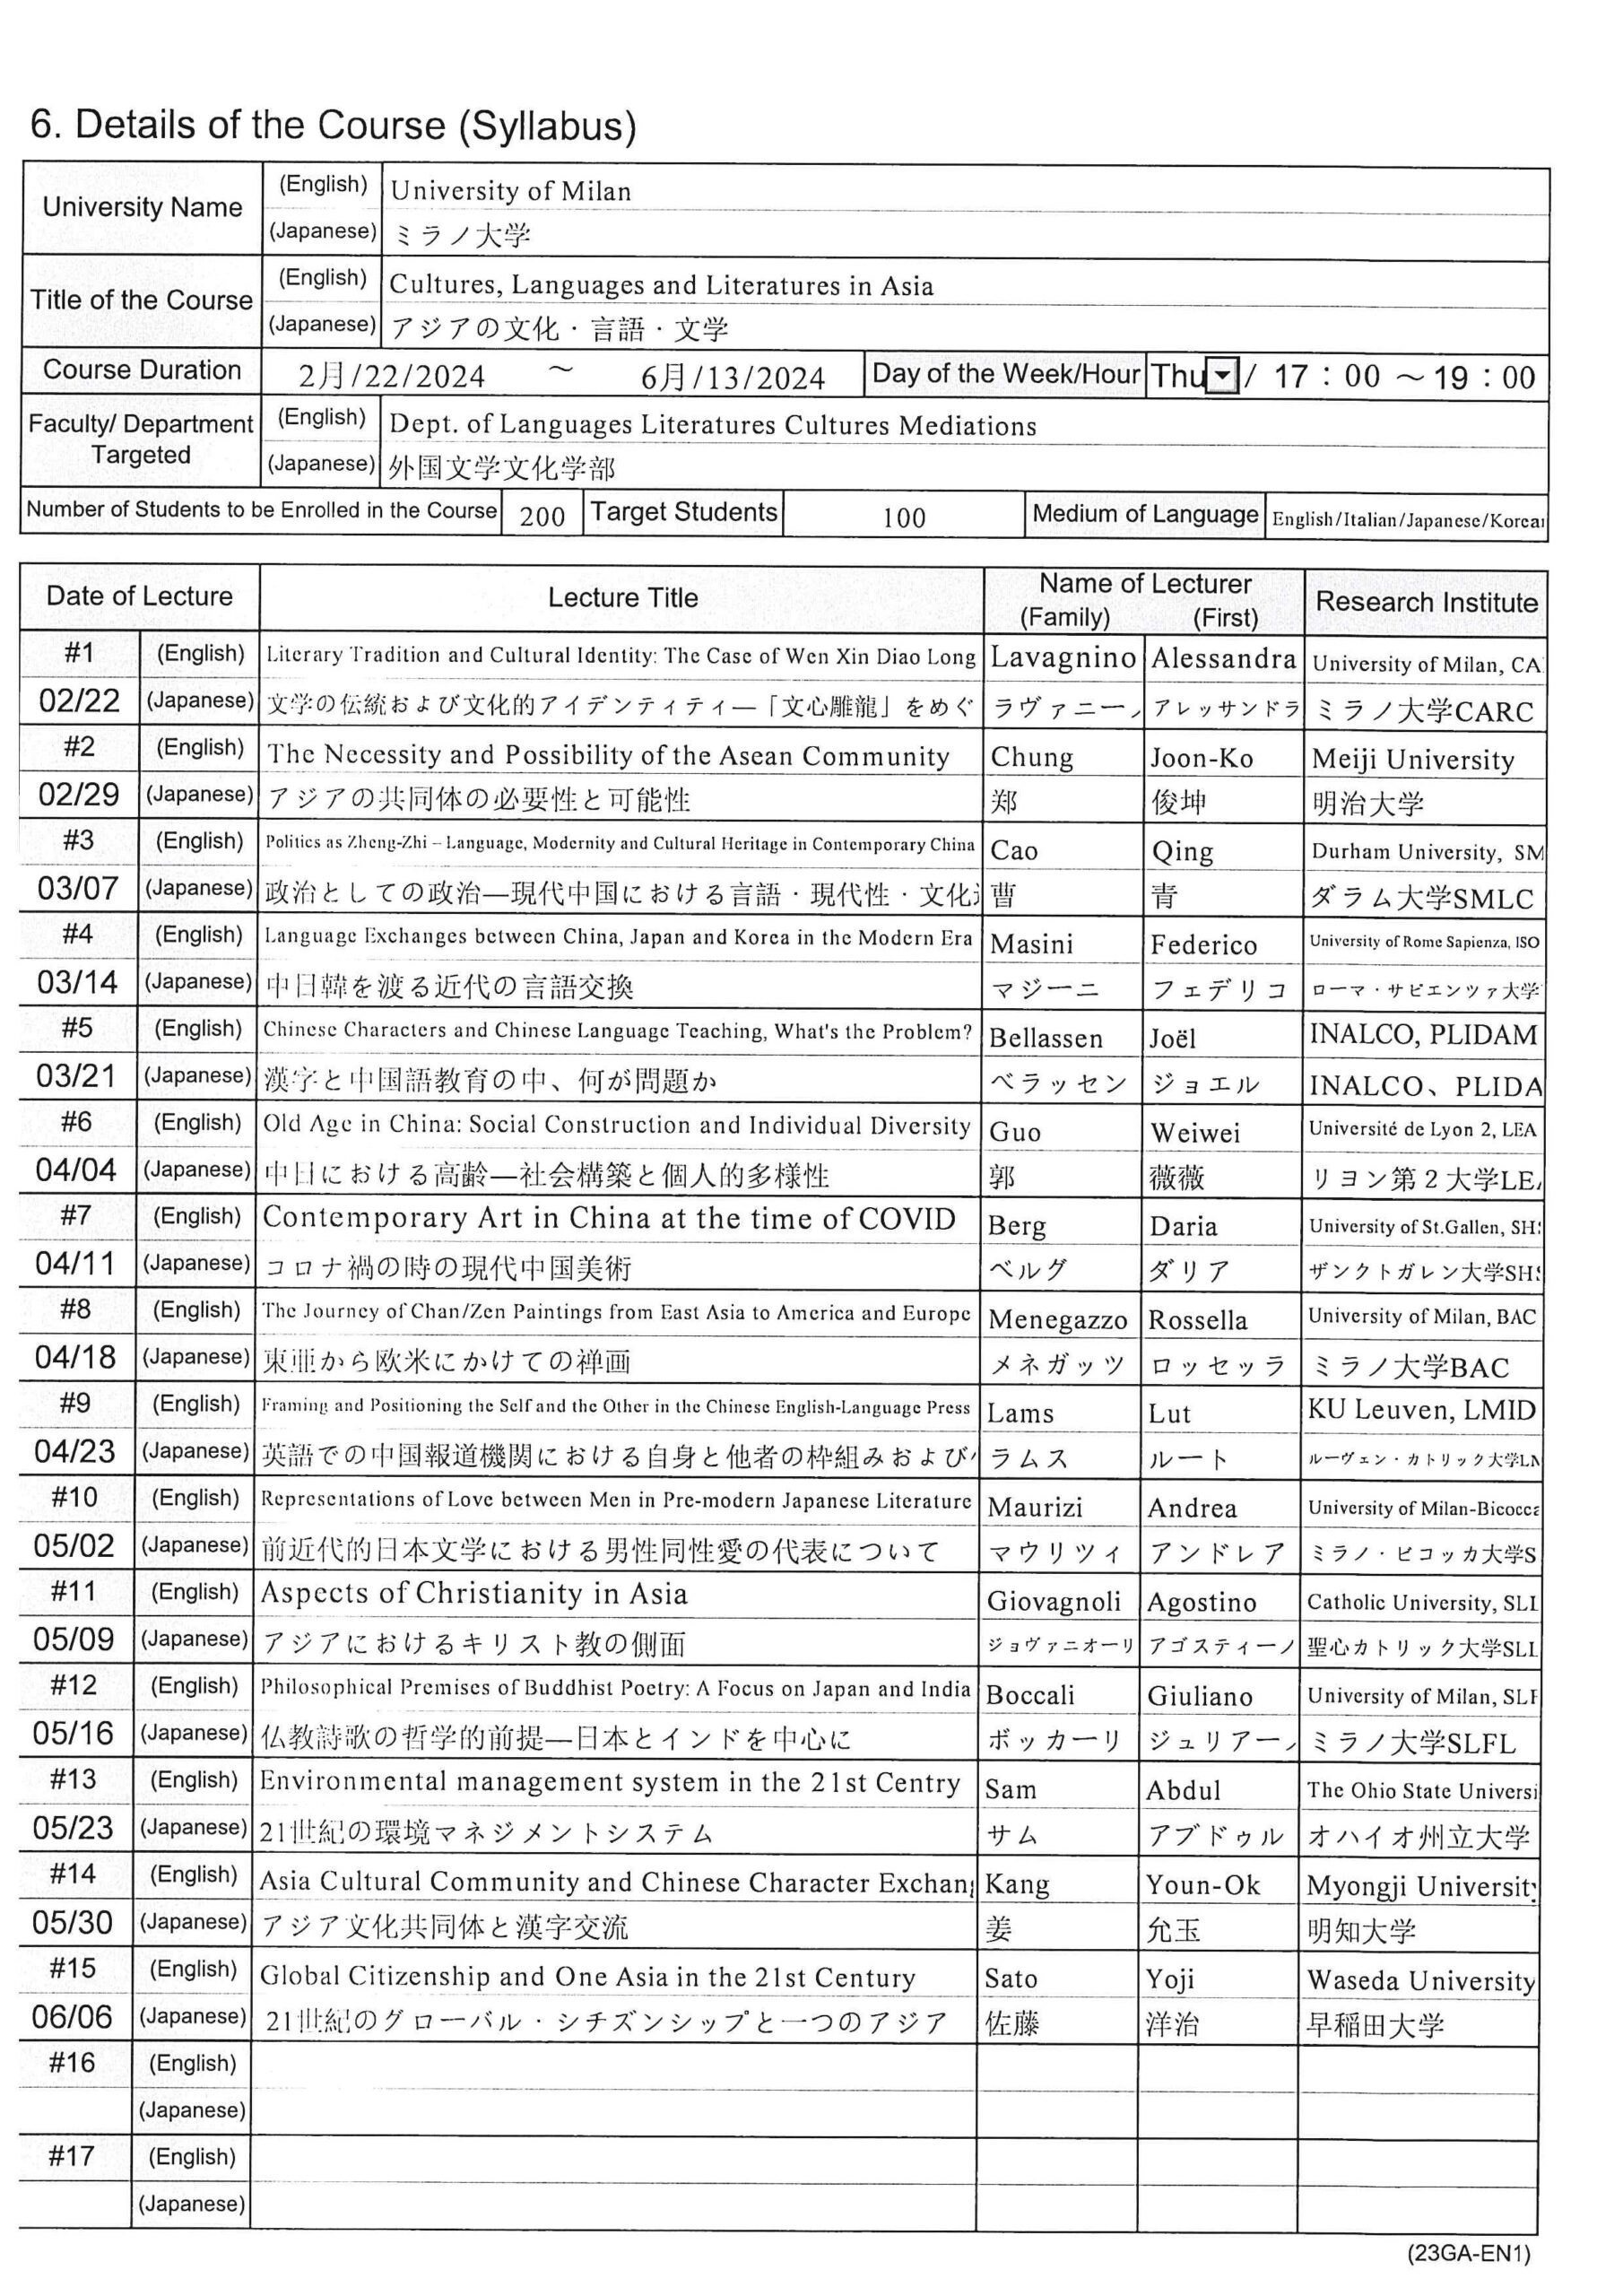 6. Details of the Course (Syllabus)
University Name
(English) University of Milan
(Japanese) ミラノ大学
Title of the Course
(English) Cultures, Languages and Literatures in Asia
(Japanese) アジアの文化・言語・文学
Course Duration 2月/22/2024 ～ 6月/13/2024 Day of the Week/Hour Thu / 17：00 ～19：00
Faculty/ Department Targeted
(English) Dept. of Languages Literatures Cultures Mediations
(Japanese) 外国文学文化学部
Number of Students to be Enrolled in the Course 200 Target Students 100 Medium of Language English/Italian/Japanese/Korea
Date of Lecture Lecture Title Name of Lecturer (Family) (First) Research Institute
#1 (English) Literary Tradition and Cultural Identity: The Case of Wen Xin Diao Long Lavagnino Alessandra University of Milan, CA
02/22 (Japanese) 文学の伝統および文化的アイデンティティ―「文心雕龍」をめぐ ラヴァニー アレッサンドラ ミラノ大学CARC
#2 (English) The Necessity and Possibility of the Asean Community Chung Joon-Ko Meiji University
02/29 (Japanese) アジアの共同体の必要性と可能性 郑 俊坤 明治大学
#3 (English) Politics as Zheng-Zhi – Language, Modernity and Cultural Heritage in Contemporary China Cao Qing Durham University, SM
03/07 (Japanese) 政治としての政治―現代中国における言語・現代性・文化 曹 青 ダラム大学SMLC
#4 (English) Language Exchanges between China, Japan and Korea in the Modern Era Masini Federico University of Rome Sapienza, ISO
03/14 (Japanese) 中日韓を渡る近代の言語交換 マジーニ フェデリコ ローマ・サピエンツァ大学
#5 (English) Chinese Characters and Chinese Language Teaching, What's the Problem? Bellassen Joël INALCO, PLIDAM
03/21 (Japanese) 漢字と中国語教育の中、何が問題か ベラッセン ジョエル INALCO、PLIDA
#6 (English) Old Age in China: Social Construction and Individual Diversity Guo Weiwei Université de Lyon 2, LEA
04/04 (Japanese) 中日における高齢―社会構築と個人的多様性 郭 薇薇 リヨン第２大学LE
#7 (English) Contemporary Art in China at the time of COVID Berg Daria University of St.Gallen, SH
04/11 (Japanese) コロナ禍の時の現代中国美術 ベルグ ダリア ザンクトガレン大学SH
#8 (English) The Journey of Chan/Zen Paintings from East Asia to America and Europe Menegazzo Rossella University of Milan, BAC
04/18 (Japanese) 東亜から欧米にかけての禅画 メネガッツ ロッセッラ ミラノ大学BAC
#9 (English) Framing and Positioning the Self and the Other in the Chinese English-Language Press Lams Lut KU Leuven, LMID
04/23 (Japanese) 英語での中国報道機関における自身と他者の枠組みおよび ラムス ルート ルーヴェン・カトリック大学L
#10 (English) Representations of Love between Men in Pre-modern Japanese Literature Maurizi Andrea University of Milan-Bicocca
05/02 (Japanese) 前近代的日本文学における男性同性愛の代表について マウリツィ アンドレア ミラノ・ビコッカ大学S
#11 (English) Aspects of Christianity in Asia Giovagnoli Agostino Catholic University, SLL
05/09 (Japanese) アジアにおけるキリスト教の側面 ジョヴァニオーリ アゴスティーノ 聖心カトリック大学SLL
#12 (English) Philosophical Premises of Buddhist Poetry: A Focus on Japan and India Boccali Giuliano University of Milan, SLF
05/16 (Japanese) 仏教詩歌の哲学的前提―日本とインドを中心に ボッカーリ ジュリアー ミラノ大学SLFL
#13 (English) Environmental management system in the 21st Centry Sam Abdul The Ohio State Universi
05/23 (Japanese) 21世紀の環境マネジメントシステム サム アブドゥル オハイオ州立大学
#14 (English) Asia Cultural Community and Chinese Character Exchan Kang Youn-Ok Myongji University
05/30 (Japanese) アジア文化共同体と漢字交流 姜 允玉 明知大学
#15 (English) Global Citizenship and One Asia in the 21st Century Sato Yoji Waseda University
06/06 (Japanese) 21世紀のグローバル・シチズンシップと一つのアジア 佐藤 洋治 早稲田大学
#16 (English)
(Japanese)
#17 (English)
(Japanese)
(23GA-EN1)